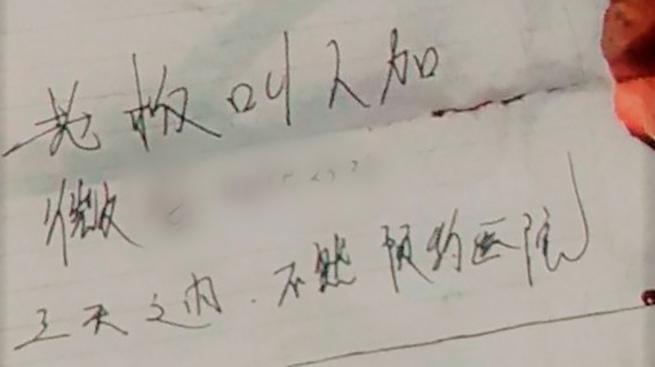 老板叫人加
微
三天之内.不然预约医院